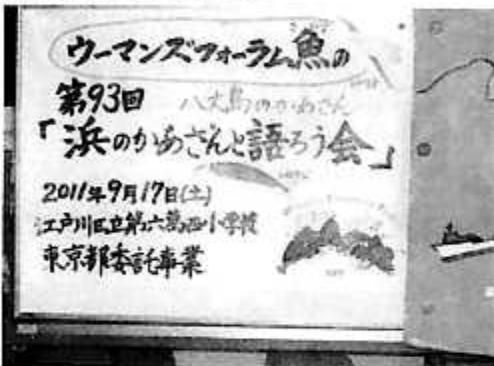 ウーマンズフォーラム魚の
第93回 八丈島のかあさん
「浜のかあさんと語ろう会」
2011年9月17日(土)
江戸川区立第六葛西小学校
東京都委託事業